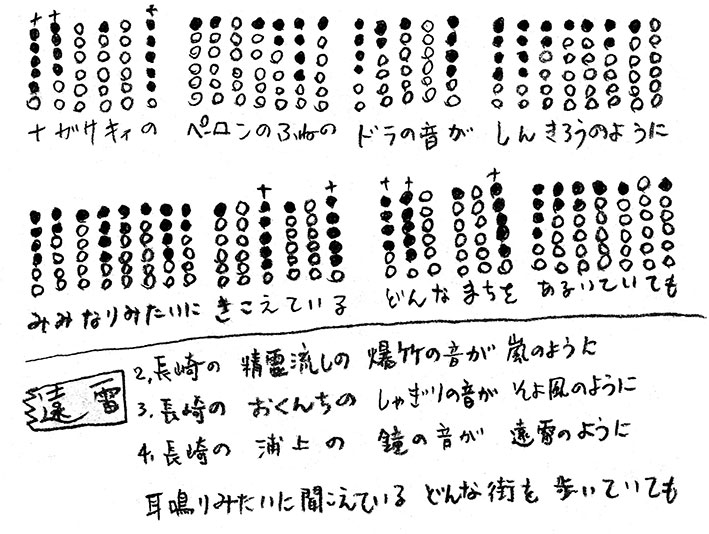 ナガサキィの ペーロンのふねの ドラの音が しんきろうのように
みみなりみたいに きこえている どんなまちを あるいていても
遠雷
2, 長崎の 精霊流しの 爆竹の音が 嵐のように
3, 長崎の おくんちの しゃぎりの音が そよ風のように
4, 長崎の 浦上の 鐘の音が 遠雷のように
耳鳴りみたいに聞こえている どんな街を 歩いていても